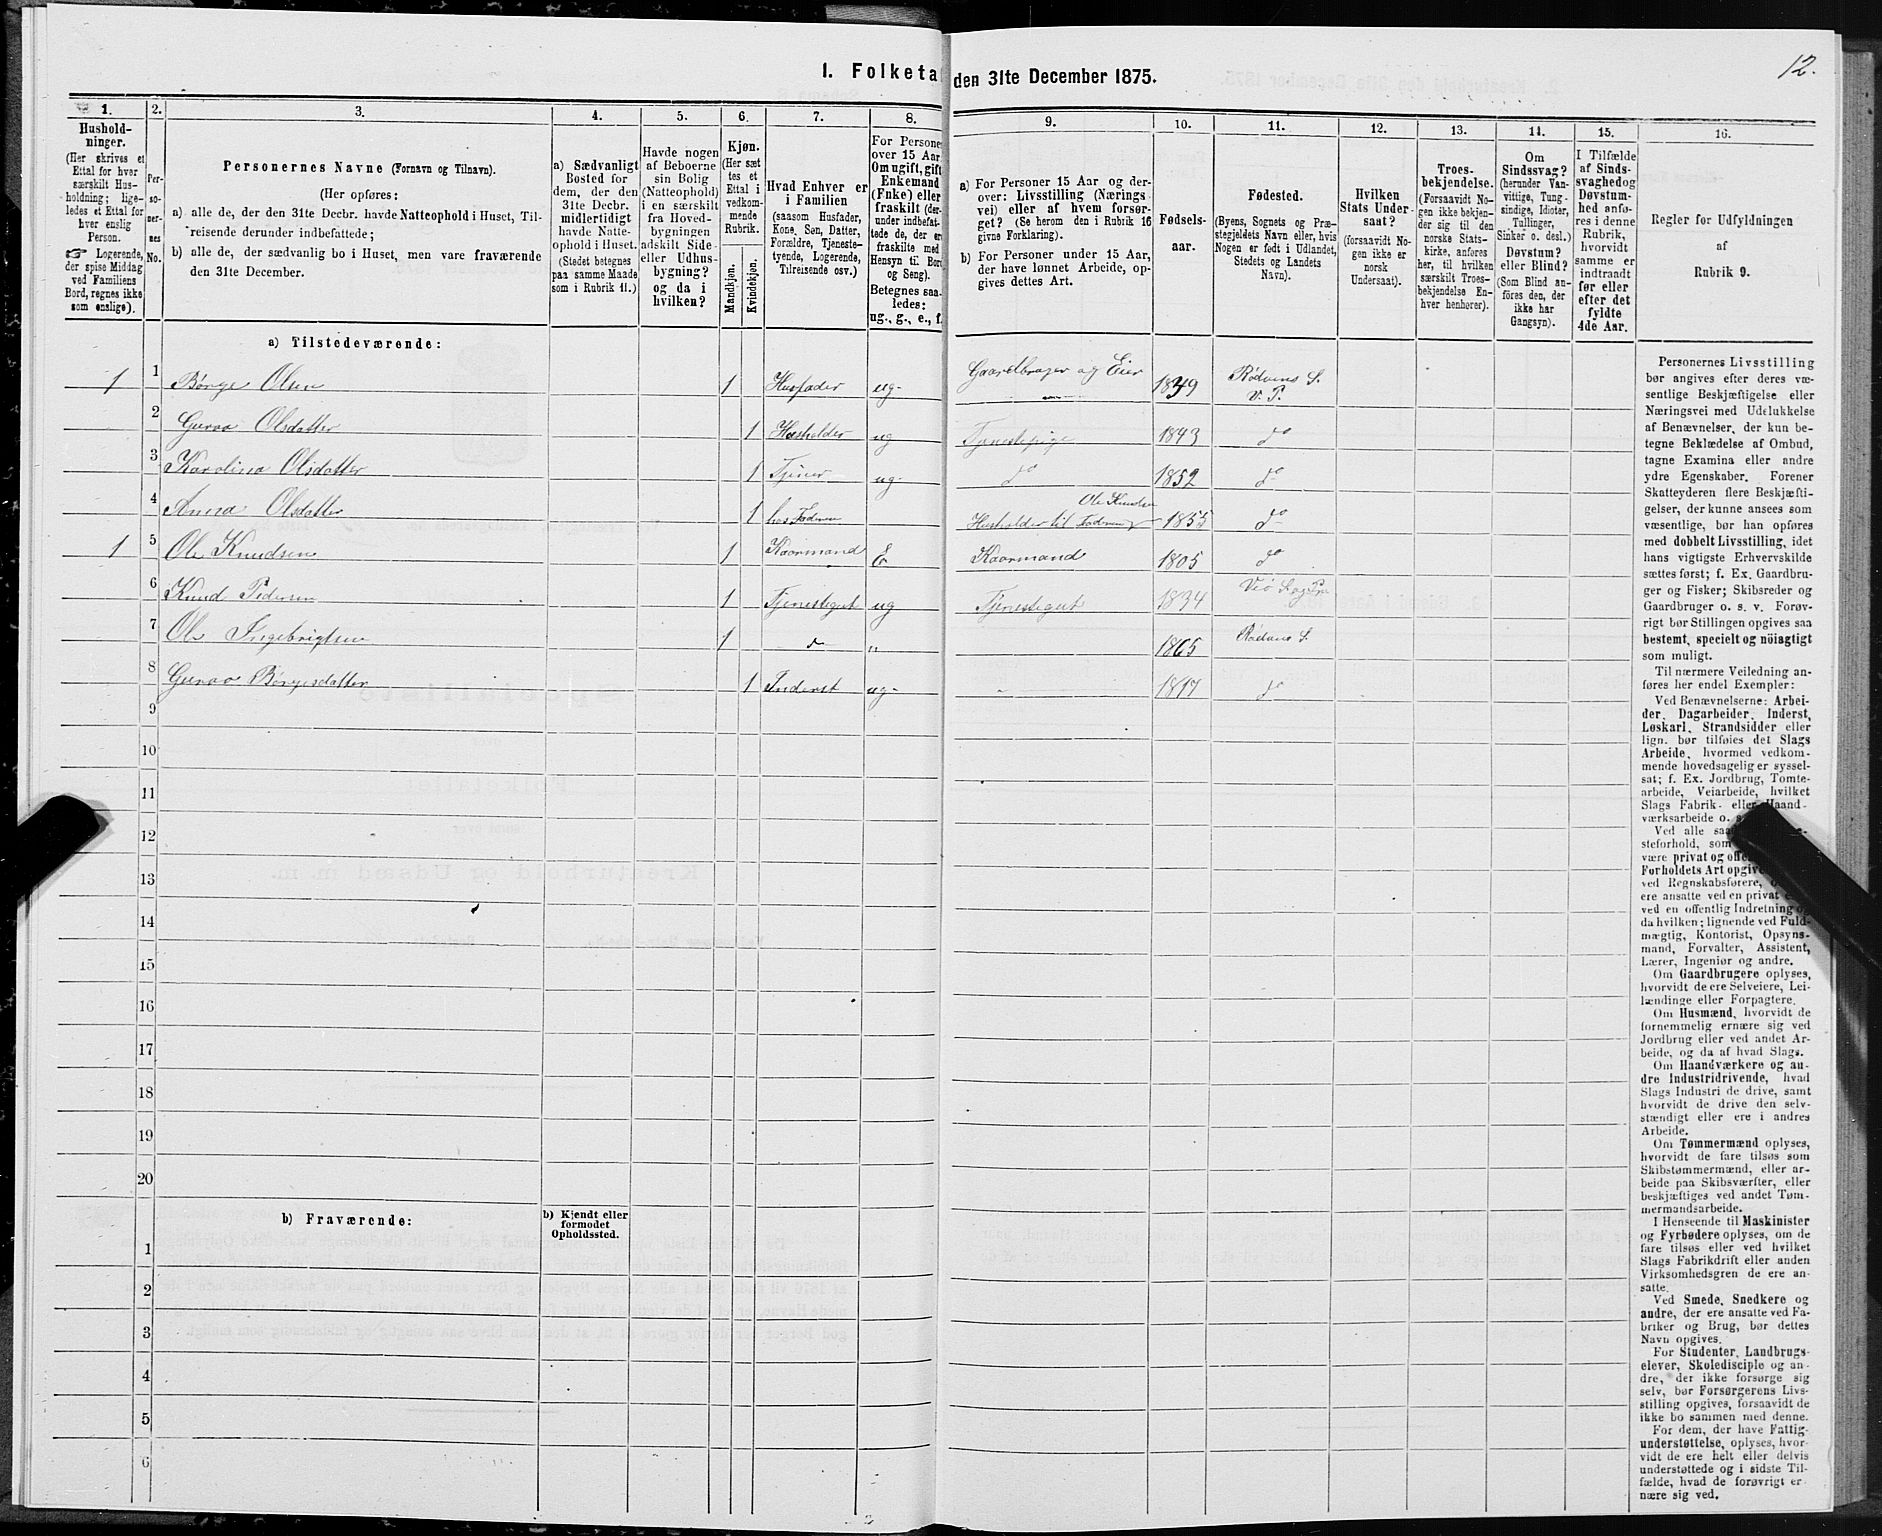 12.
1. Folketal den 31te December 1875.
1. 2. 3. 4. 5. 6. 7. 8. 9. 10. 11. 12. 13. 14. 15. 16.
Hushold-
ninger.
(Her skrives et
Ettal for hver
særskilt Hus-
holdning; lige-
ledes et Ettal for
hver enslig
Person.
☞ Logerende,
der spise Middag
ved Familiens
Bord, regnes ikke
som enslige).
Per-
so-
ner-
nes
No.
Personernes Navne (Fornavn og Tilnavn).
(Her opføres:
a) alle de, der den 31te Decbr. havde Natteophold i Huset, Til-
reisende derunder indbefattede;
b) alle de, der sædvanlig bo i Huset, men vare fraværende
den 31te December.
a) Sædvanligt
Bosted for
dem, der den
31te Decbr.
midlertidigt
havde Natte-
ophold i Huset.
(Stedet betegnes
paa samme Maade
som i Rubrik 11.)
Havde nogen
af Beboerne
sin Bolig
(Natteophold)
i en særskilt
fra Hoved-
bygningen
adskilt Side-
eller Udhus-
bygning?
og da i
hvilken?
Kjøn.
(Her sæt-
tes et
Ettal i
vedkom-
mende
Rubrik.
Mandkjøn.
Kvindekjøn.
Hvad Enhver er
i Familien
(saasom Husfader,
Kone, Søn, Datter,
Forældre, Tjeneste-
tyende, Logerende,
Tilreisende osv.)
For Personer
over 15 Aar:
Om ugift, gift,
Enkemand
(Enke) eller
fraskilt (der-
under indbefat-
tede de, der ere
fraskilte med
Hensyn til Bord
og Seng).
Betegnes saa-
ledes:
ug., g., e., f.
a) For Personer 15 Aar og der-
over: Livsstilling (Nærings-
vei) eller af hvem forsør-
get? (Se herom den i Rubrik 16
givne Forklaring).
b) For Personer under 15 Aar,
der have lønnet Arbeide, op-
gives dettes Art.
Fødsels-
aar.
Fødested.
(Byens, Sognets og Præ-
stegjeldets Navn eller, hvis
Nogen er født i Udlandet,
Stedets og Landets
Navn).
Hvilken
Stats Under-
saat?
(forsaavidt No-
gen ikke er
norsk
Undersaat).
Troes-
bekjendelse.
(Forsaavidt No-
gen ikke bekjen-
der sig til den
norske Stats-
kirke, anføres
her, til hvilken
særskilt Troes-
bekjendelse En-
hver henhører).
Om
Sindssvag?
(herunder Van-
vittige, Tung-
sindige, Idioter,
Tullinger,
Sinker o. desl.)
Døvstum?
eller Blind?
(Som Blind an-
føres den, der
ikke har
Gangsyn).
I Tilfælde
af Sinds-
svaghed og
Døvstum-
hed anfø-
res i denne
Rubrik,
hvorvidt
samme er
indtraadt
før eller
efter det
fyldte
4de Aar.
Regler for Udfyldningen
af
Rubrik 9.
a) Tilstedeværende:
1 1 Børge Olsen 1 Husfader ug. Gaardbruger og Eier 1849 Rødvens S. V. P.
2 Guroo Olsdatter 1 Husholder ug Tjenestepige 1843 do
3 Karolina Olsdatter 1 Tjener ug. do 1852 do
4 Anna Olsdatter 1 hos Faderen Husholder til Faderen Ole Knudsen 1855 do
1 5 Ole Knudsen 1 Kaarmand E Kaarmand 1805 do
6 Knud Pedersen 1 Tjenestegut ug Tjenestegut 1834 Veø
7 Ole Ingebrigtsen 1 do " 1865 Rødvens S.
8 Guroo Børgesdatter 1 Inderst ug. 1817 do
9
10
11
12
13
14
15
16
17
18
19
20
b) Fraværende:
b) Kjendt eller
formodet
Opholdssted.
1
2
3
4
5
6
Personernes Livsstilling
bør angives efter deres væ-
sentlige Beskjæftigelse eller
Næringsvei med Udelukkelse
af Benævnelser, der kun be-
tegne Beklædelse af Ombud,
tagne Examina eller andre
ydre Egenskaber. Forener
Skatteyderen flere Beskjæfti-
gelser, der kunne ansees som
væsentlige, bør han opføres
med dobbelt Livsstilling, idet
hans vigtigste Erhvervskilde
sættes først; f. Ex. Gaardbru-
ger og Fisker; Skibsreder og
Gaardbruger o. s. v. Forøv-
rigt bør Stillingen opgives saa
bestemt, specielt og nöiagtigt
som muligt.
Til nærmere Veiledning an-
føres her endel Exempler:
Ved Benævnelserne: Arbei-
der, Dagarbeider, Inderst,
Løskarl, Strandsidder eller
lign. bør tilføies det Slags
Arbeide, hvormed vedkom-
mende hovedsagelig er syssel-
sat; f. Ex. Jordbrug, Tomte-
arbeide, Veiarbeide, hvilket
Slags Fabrik- eller Haand-
værksarbeide o. s.
Ved alle saa
steforhold, som
være privat og
Forholdets Art
ved Regnskabsførere,
ere ansatte ved en privat
ved en offentlig Indretning og
da hvilken; lignende ved Fuld-
mægtig, Kontorist, Opsyns-
mand, Forvalter, Assistent,
Lærer, Ingeniør og andre.
Om Gaardbrugere oplyses,
hvorvidt de ere Selveiere, Lei-
lændinge eller Forpagtere.
Om Husmænd, hvorvidt de
fornemmelig ernære sig ved
Jordbrug eller ved andet Ar-
beide, og da af hvad Slags.
Om Haandværkere og an-
dre Industridrivende, hvad
Slags Industri de drive, samt
hvorvidt de drive den selv-
stændigt eller ere i andres
Arbeide.
Om Tømmermænd oplyses,
hvorvidt de fare tilsøs som
Skibstømmermænd, eller ar-
beide paa Skibsværfter, eller
beskjæftiges ved andet Tøm-
mermandsarbeide.
I Henseende til Maskinister
og Fyrbødere oplyses, om de
fare tilsøs eller ved hvilket
Slags Fabrikdrift eller anden
Virksomhedsgren de ere an-
satte.
Ved Smede, Snedkere og
andre, der ere ansatte ved Fa-
briker og Brug, bør dettes
Navn opgives.
For Studenter, Landbrugs-
elever, Skoledisciple og an-
dre, der ikke forsørge sig
selv, bør Forsørgerens Livs-
stilling opgives, forsaavidt de
ikke bo sammen med denne.
For dem, der have Fattig-
understøttelse, oplyses, hvor-
vidt de ere helt eller delvis
understøttede og i sidste Til-
fælde, hvad de forøvrigt er-
nære sig ved.